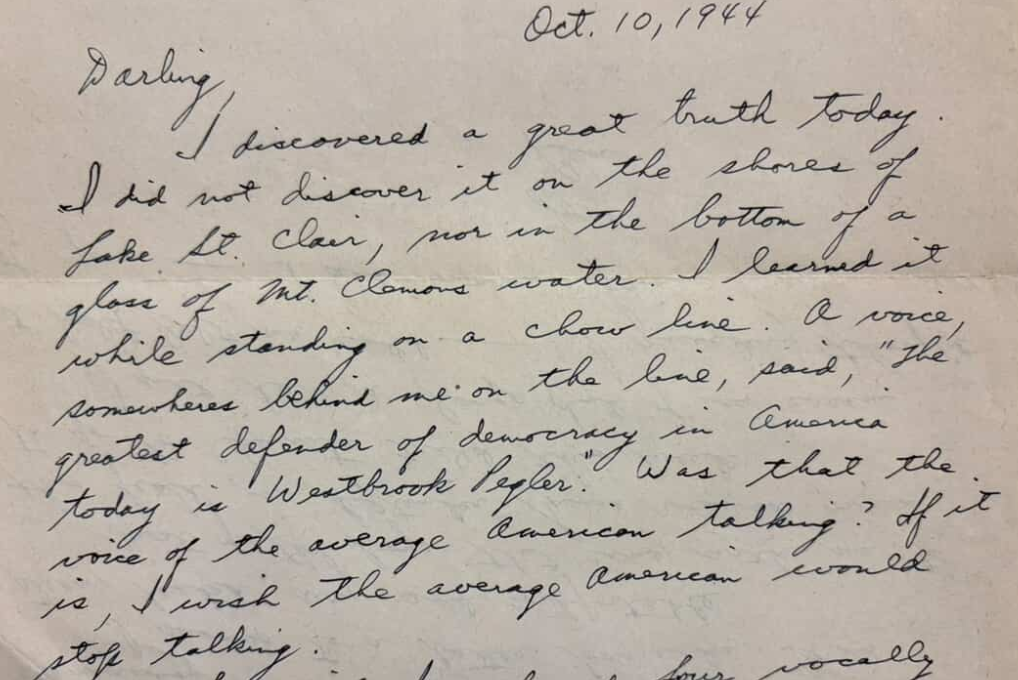 Oct. 10, 1944
Darling,
I discovered a great truth today.
I did not discover it on the shores of
Lake St. Clair, nor in the bottom of a
glass of Mt. Clemons water. I learned it
while standing on a chow line. A voice,
somewheres behind me on the line, said, "The
greatest defender of democracy in America
today is Westbrook Pegler." Was that the
voice of the average American talking? If it
is, I wish the average American would
stop talking.
four vocally